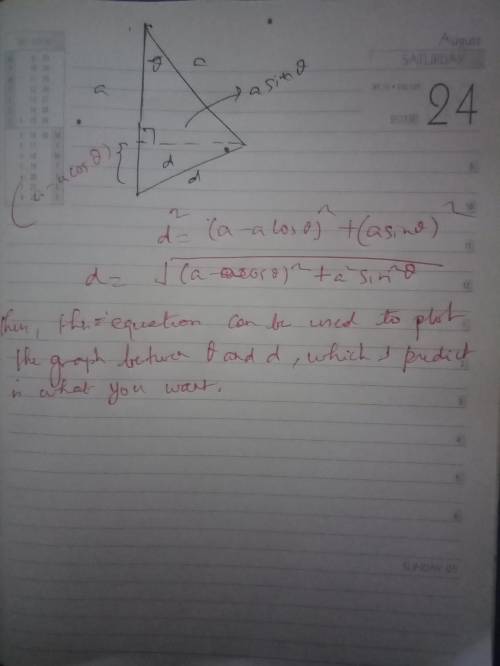 August
SATURDAY
24
θ
a
a
a sinθ
(a-a cosθ)
d
d
d² = (a - a cosθ)² + (a sinθ)²
d = √(a-acosθ)² + a² sin²θ
then, the equation can be used to plot
the graph between θ and d, which I predict
is what you want.
SUNDAY 25